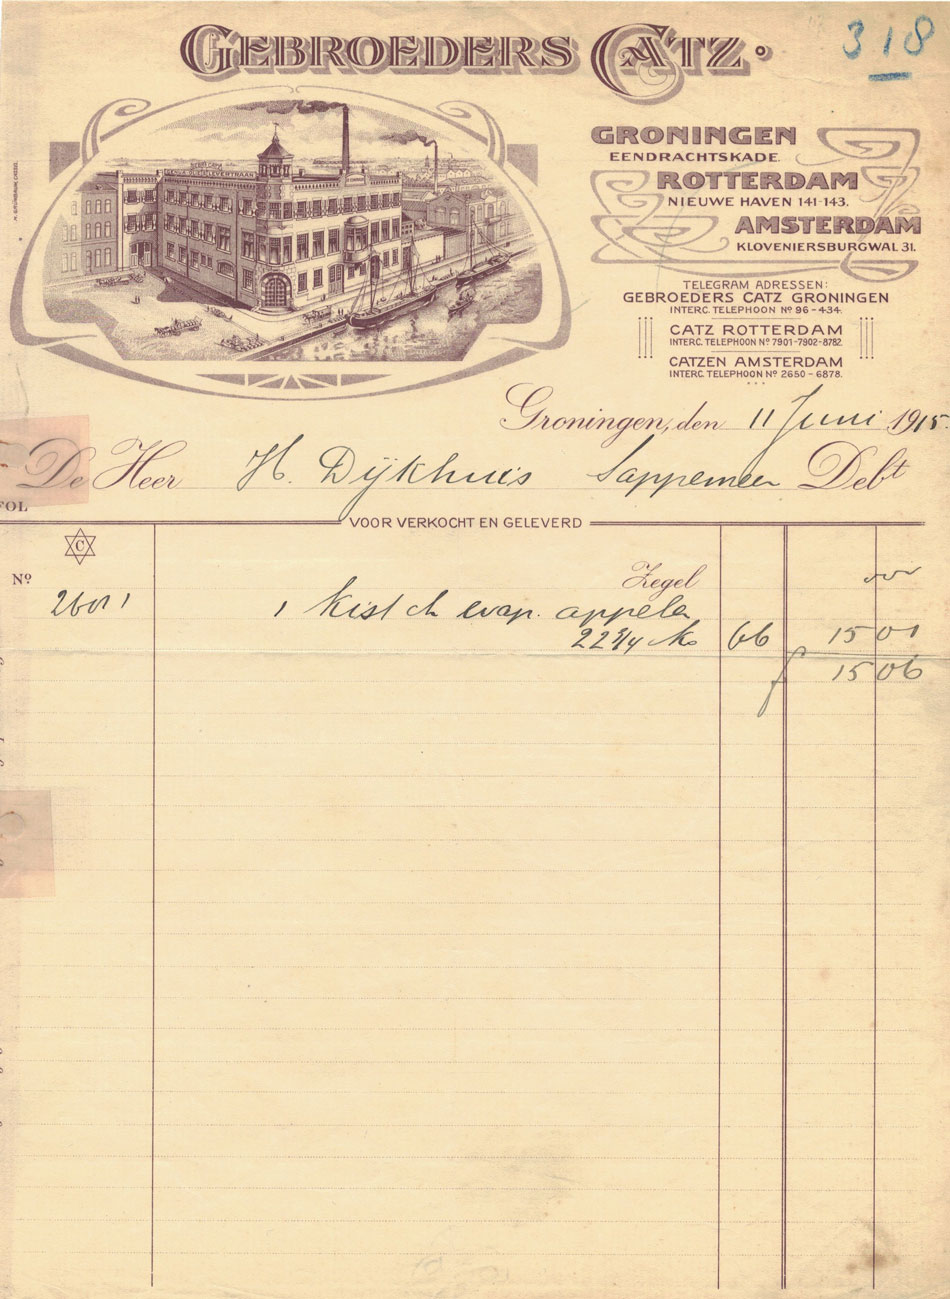 GEBROEDERS CATZ.
318
GRONINGEN
EENDRACHTSKADE
ROTTERDAM
NIEUWE HAVEN 141-143.
AMSTERDAM
KLOVENIERSBURGWAL 31.
TELEGRAM ADRESSEN:
GEBROEDERS CATZ GRONINGEN
INTERC. TELEPHOON Nº 96-434.
CATZ ROTTERDAM
INTERC. TELEPHOON Nº 7901-7902-8782.
CATZEN AMSTERDAM
INTERC. TELEPHOON Nº 2650-6878.
Groningen, den 11 Juni 1915.
De Heer H. Dijkhuis Sappemeer Debt
FOL
VOOR VERKOCHT EN GELEVERD
C
Nº Zegel
1 kist ch evap. appelen
22 3/4 Ko 66 15 01
f 15 06